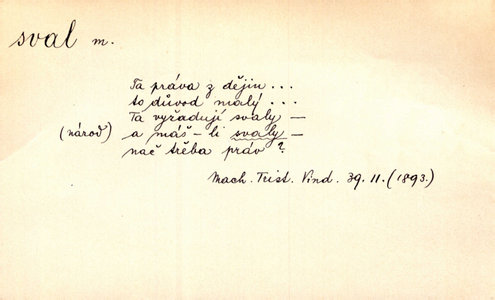 sval m.
Ta práva z dějin...
to důvod malý...
Ta vyřadují svaly —
(národ) a máš-li svaly —
nač třeba práv?
Mach. Trist. Vind. 39. II. (1893.)